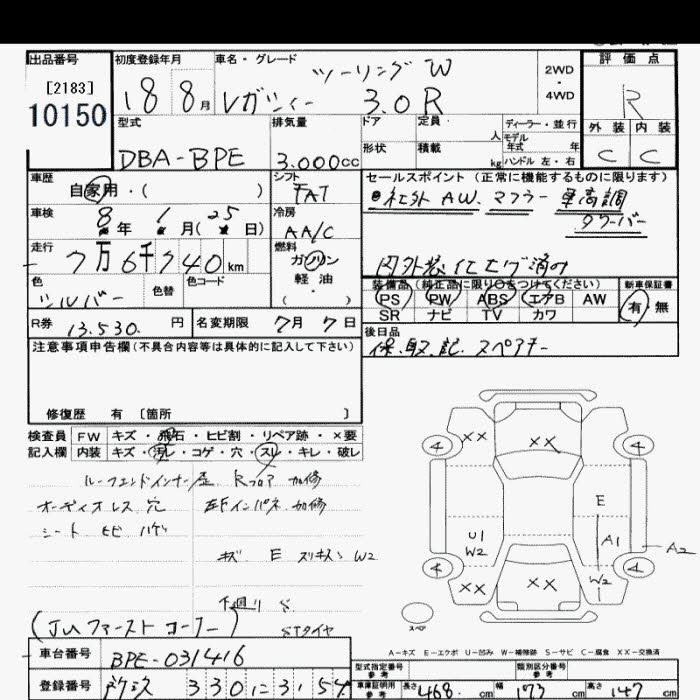 出品番号
[2183]
10150
初度登録年月
18 8月
車名・グレード
ツーリング W
レガシィー 3.0R
2WD
・
4WD
評価点
R
外装 内装
C C
型式
DBA-BPE
排気量
3.000cc
ドア 定員 人
形状 積載 kg
ディーラー・並行
モデル年式 年式
ハンドル 左・右
車歴
自家用・( )
シフト
FAT
車検
8年 1月(25日)
冷房
AA/C
走行
7万6千740km
燃料
ガソリン
軽油
( ・ )
色
シルバー
色替
色コード
R券 13.530 円
名変期限 7月7日
セールスポイント (正常に機能するものに限ります)
社外 AW. マフラー 車高調
タワーバー
内外装仕上げ済み
装備品(純正品に限り○をつけてください)
PS PW ABS エアB AW
SR ナビ TV カワ
新車保証書
有 無
後日品
保.取.記.スペアキー
注意事項申告欄(不具合内容等は具体的に記入して下さい)
修復歴 有 〔箇所 〕
検査員 FW キズ・飛石・ヒビ割・リペア跡・×要
記入欄 内装 キズ・汚レ・コゲ・穴・スレ・キレ・破レ
ルーフエンドインナー歪 Rフロア 加修
オーディオレス 穴 左Fインパネ 加修
シート ヒビ ハゲ
キズ E スリキズ W2
下廻り S
(JUファーストコーナー) STタイヤ
4 XX XX 4
E
U1 A1 A2
W2
4 W2 4
XX XX
スペア
A-キズ E-エクボ U-凹み W-補修跡 S-サビ C-腐食 XX-交換済
車台番号 BPE-031416
型式指定番号 参考
類別区分番号 参考
登録番号 330 に 3154
車庫証明用 参考 長さ 468 cm 幅 173 cm 高さ 147 cm